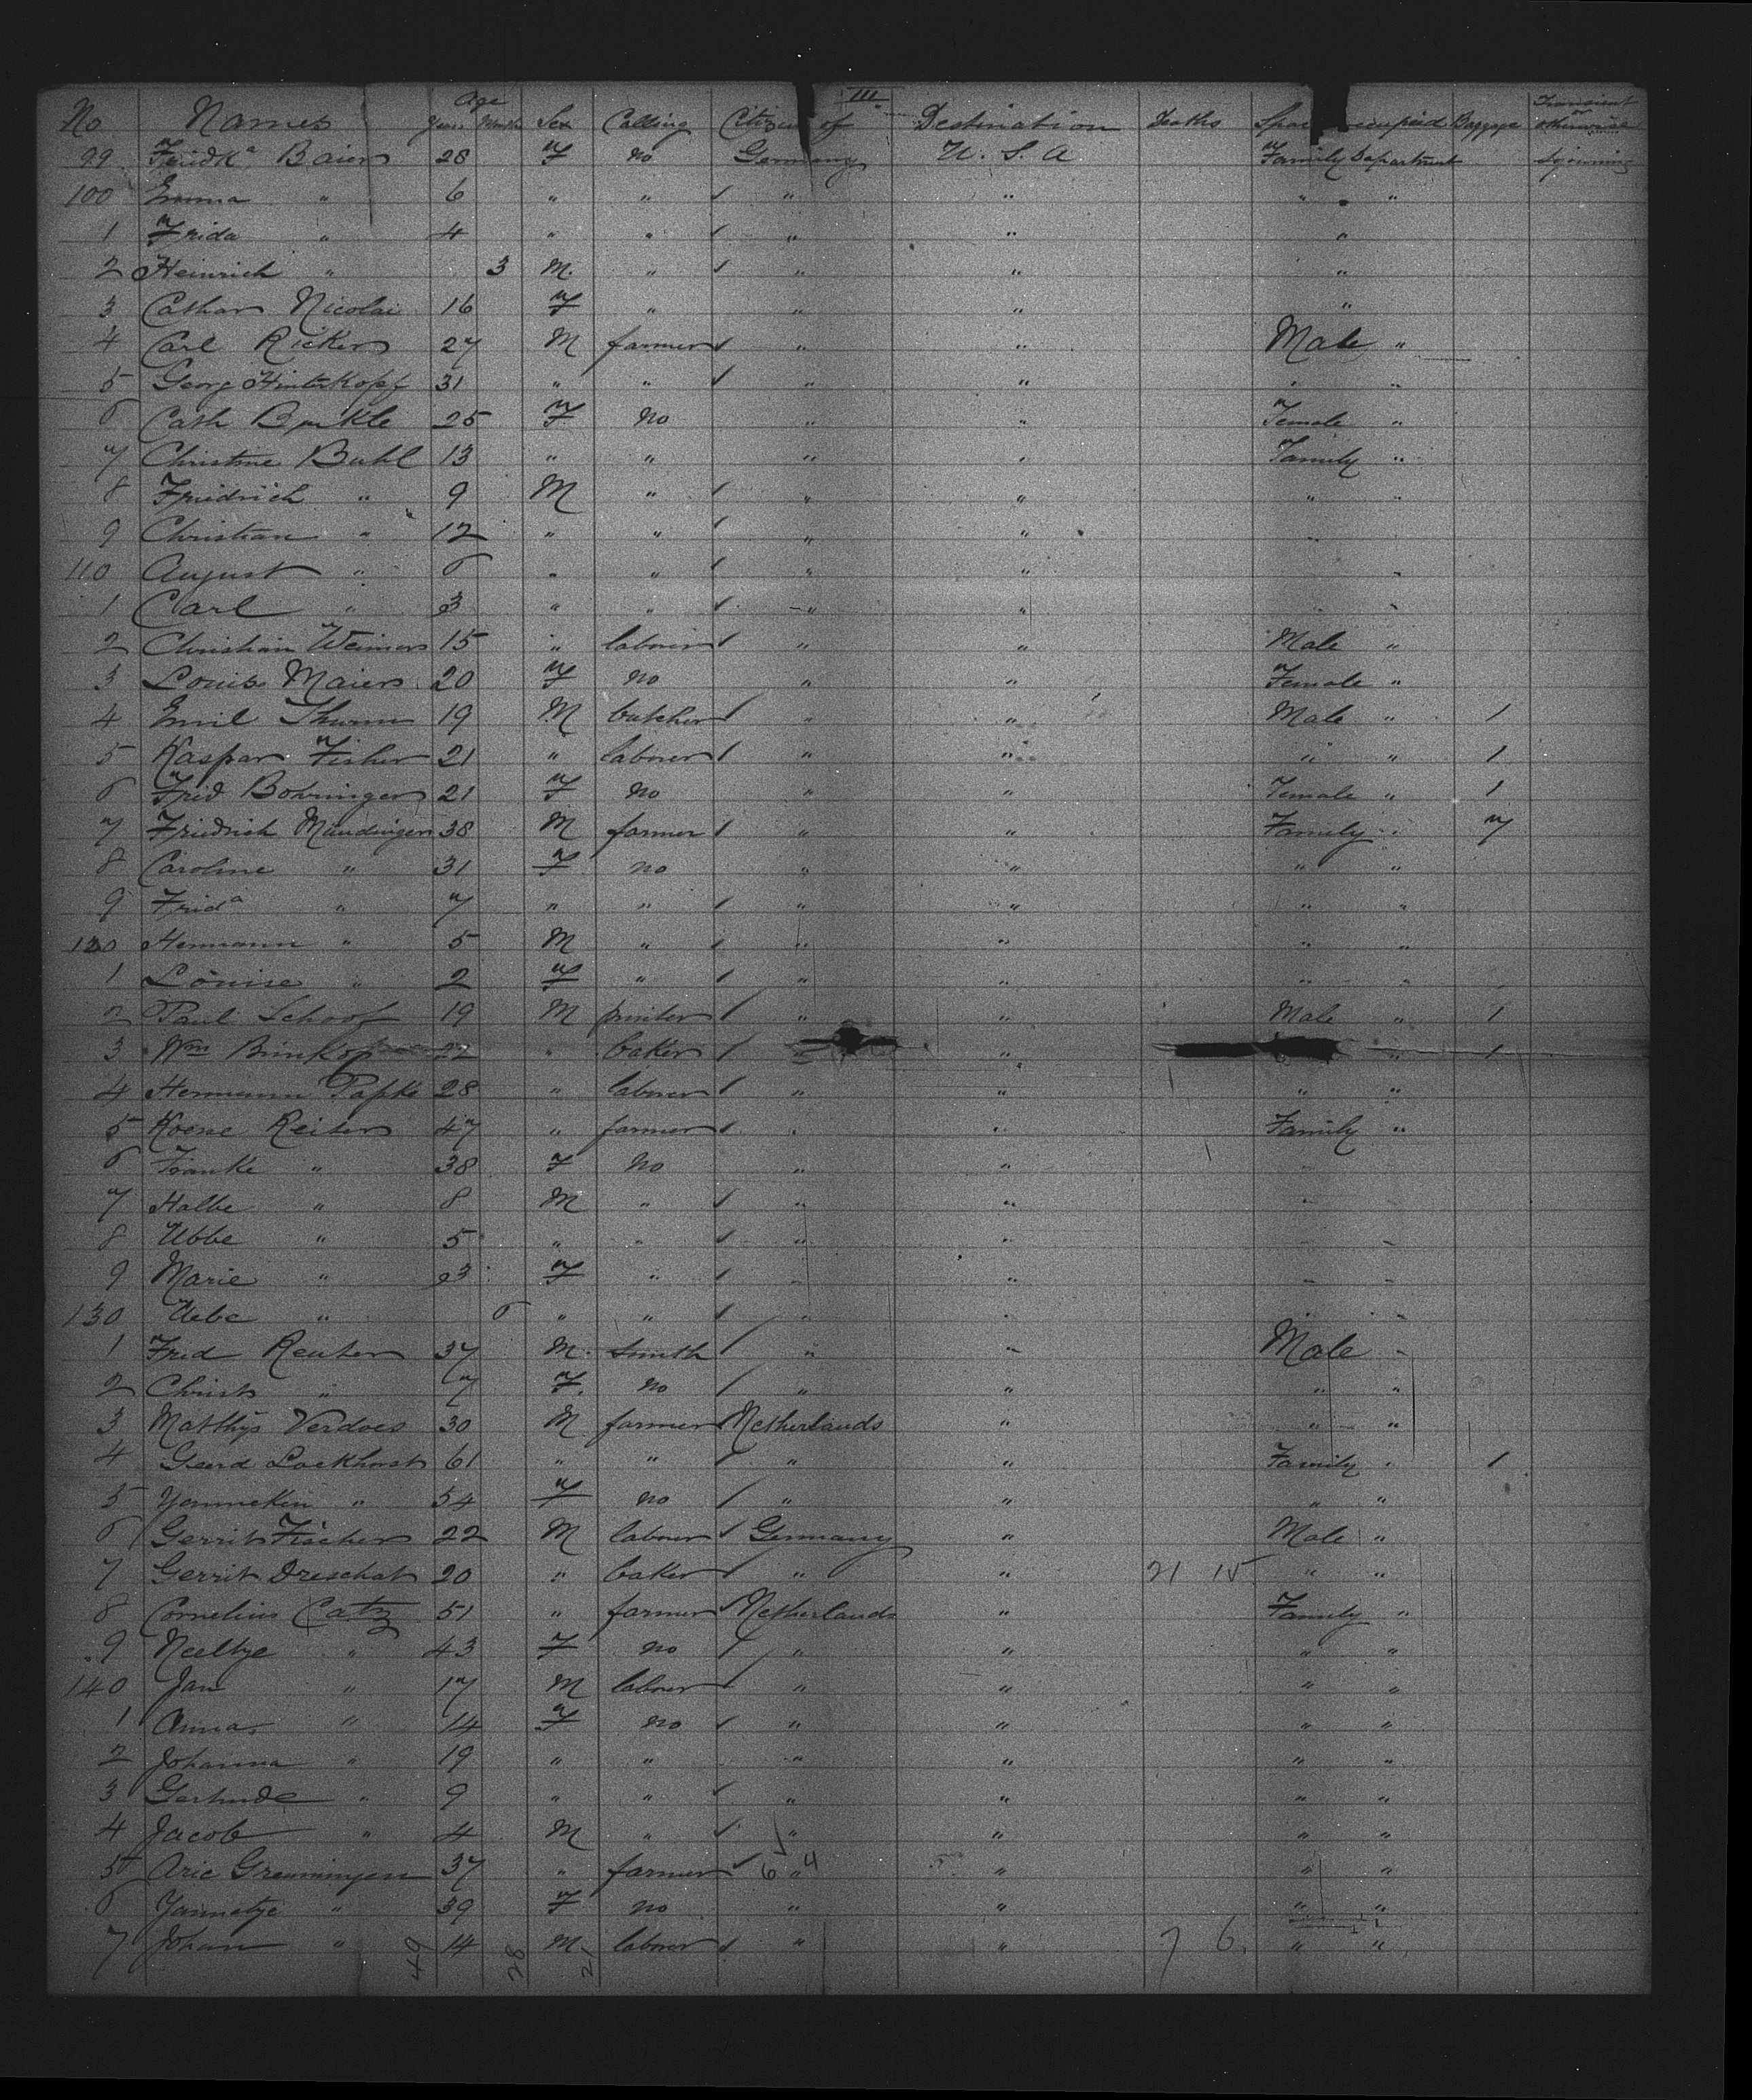 III
No Names Age Years Months Sex Calling Citizen of Destination Deaths Space occupied Baggage Transient or otherwise
99 Fridka Baier 28 F no Germany U. S. A Family Department Sojourning
100 Emma " 6 " " " " " "
1 Frida " 4 " " " " "
2 Heinrich " 3 M. " " " "
3 Cathar Nicolai 16 F " " " "
4 Carl Rickers 27 M farmer " " Male "
5 Georg Hinterkopf 31 " " " " " "
6 Cath 25 F no " " Female "
7 Christine Buhl 13 " " " " Family "
8 Friedrich " 9 M " " " " "
9 Christian " 12 " " " " "
110 August " 6 " " " " "
1 Carl " 3 " " " " " "
2 Christian Weimer 15 " laborer " " Male "
3 Louise Maier 20 F no " " Female "
4 Emil Thurm 19 M butcher " " Male " 1
5 Kaspar Fisher 21 " laborer " " " " 1
6 Frid Bohringer 21 F no " " Female " 1
7 Friedrich Mündinger 38 M farmer " " Family " 7
8 Caroline " 31 F no " " " "
9 Frida " 7 " " " " " "
120 Hermann " 5 M " " " " "
1 Louise " 2 F " " " " "
2 Paul Schoof 19 M printer " " Male " 1
3 Wm Brinkop 22 " baker " " 1
4 Hermann Papke 28 " laborer " " " "
5 Koene Reiter 47 " farmer " " Family "
6 Frauke " 38 F no " "
7 Halbe " 8 M " " " " "
8 Ubbe " 5 " " " " "
9 Marie " 23 F " " " " "
130 Uebe " 6 " " " " "
1 Fred Reuter 37 M. smith " " Male "
2 Christ " 7 F. no " " " "
3 Matthijs Verdoes 30 M farmer Netherlands " " "
4 Geerd Lockhorst 61 " " " " Family " 1
5 Yannekin " 54 F no " " " "
6 Gerrit Fischer 22 M laborer Germany " Male "
7 Gerrit Dreschat 20 " baker " " 21 15 " "
8 Cornelius Catz 51 " farmer Netherlands " Family "
9 Neeltje " 43 F no " " " "
140 Jan " 17 M laborer " " " "
1 Anna " 14 F no " " " "
2 Johanna " 19 " " " " " "
3 Gertrude " 9 " " " " " "
4 Jacob " 4 M " " " " "
5 Arie Greuningen 37 " farmer 6 " 4 " " "
6 Jannetje " 39 F no " " " "
7 Johan " 14 M. laborer " " 7 6. " "
49 28 21